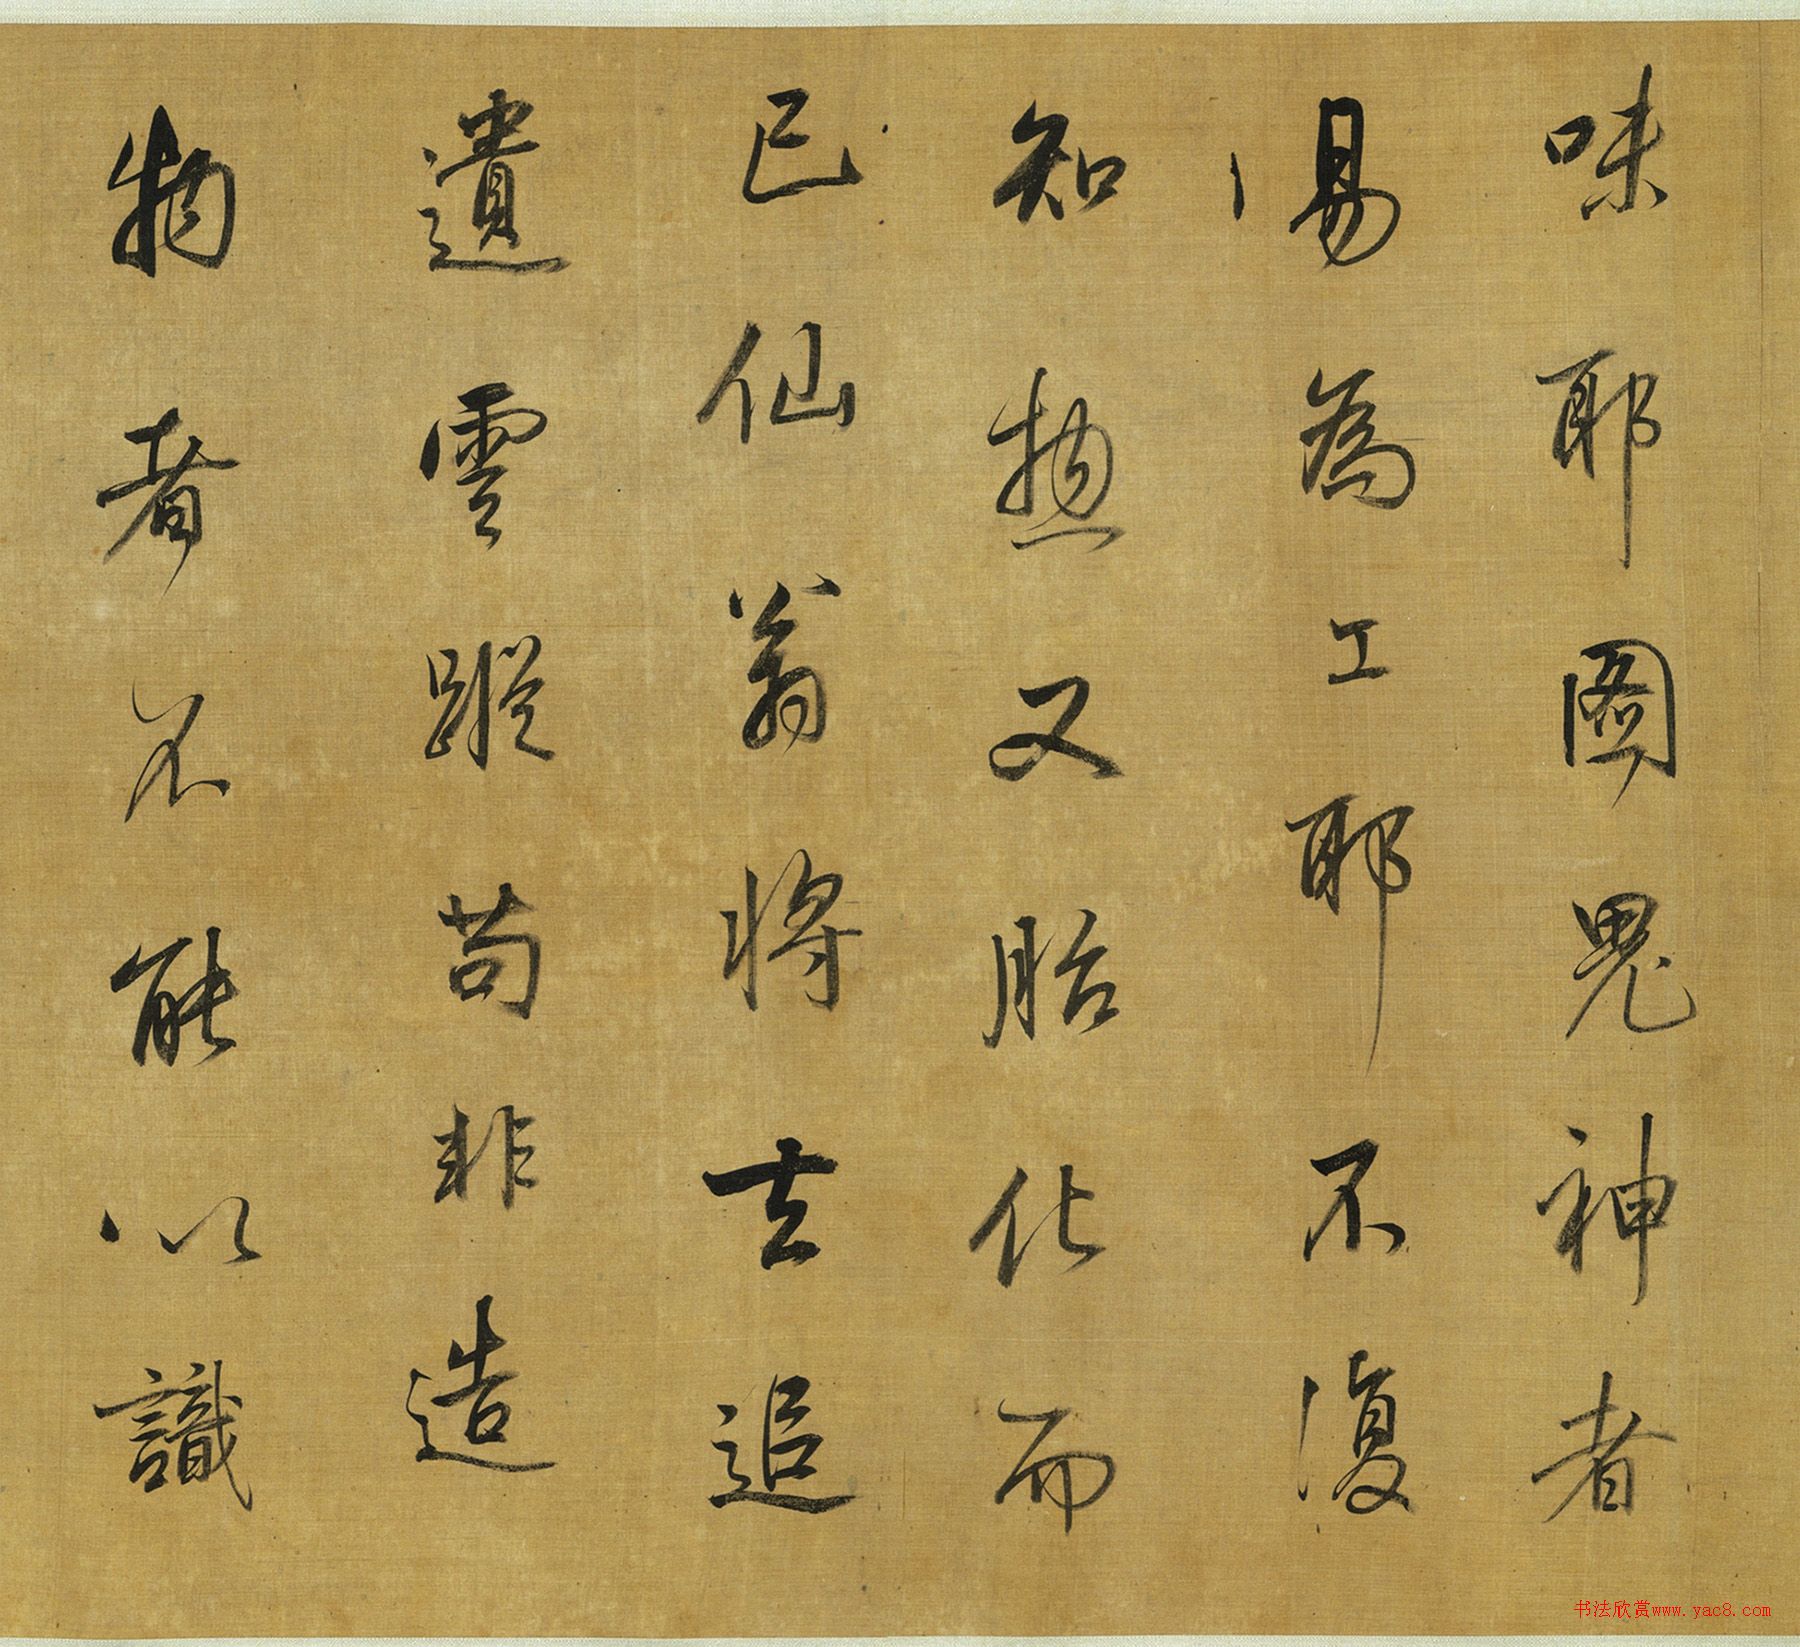 味耶圖鬼神者
易為工耶不復
知愸又胎化而
已仙翁將去追
遺雲蹤苟非造
物者不能以識
书法欣赏www.yac8.com